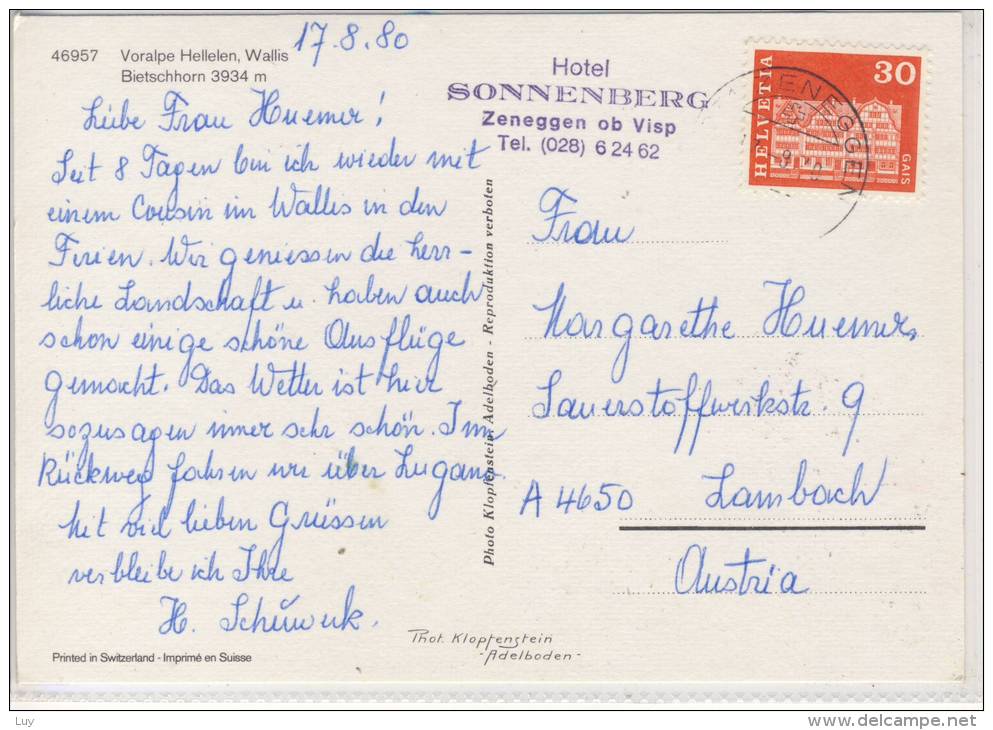 17.8.80
46957 Voralpe Hellelen, Wallis
Bietschhorn 3934 m
Hotel
SONNENBERG
Zeneggen ob Visp
Tel. (028) 6 24 62
HELVETIA
30
GAIS
ZENEGGEN
Liebe Frau Huemer!
Seit 8 Tagen bin ich wieder mit
einem Cousin im Wallis in den
Ferien. Wir geniessen die herr-
liche Landschaft u. haben auch
schon einige schöne Ausflüge
gemacht. Das Wetter ist hier
sozusagen immer sehr schön. Im
Rückweg fahren wir über Lugano.
Mit viel lieben Grüssen
verbleibe ich Ihre
H.
Photo Klopfenstein, Adelboden - Reproduktion verboten
Frau
Margarethe Huemer,
Sauerstoffwerkstr. 9
A 4650 Lambach
Austria
Phot. Klopfenstein
-Adelboden-
Printed in Switzerland - Imprimé en Suisse
Luy
www.delcampe.net